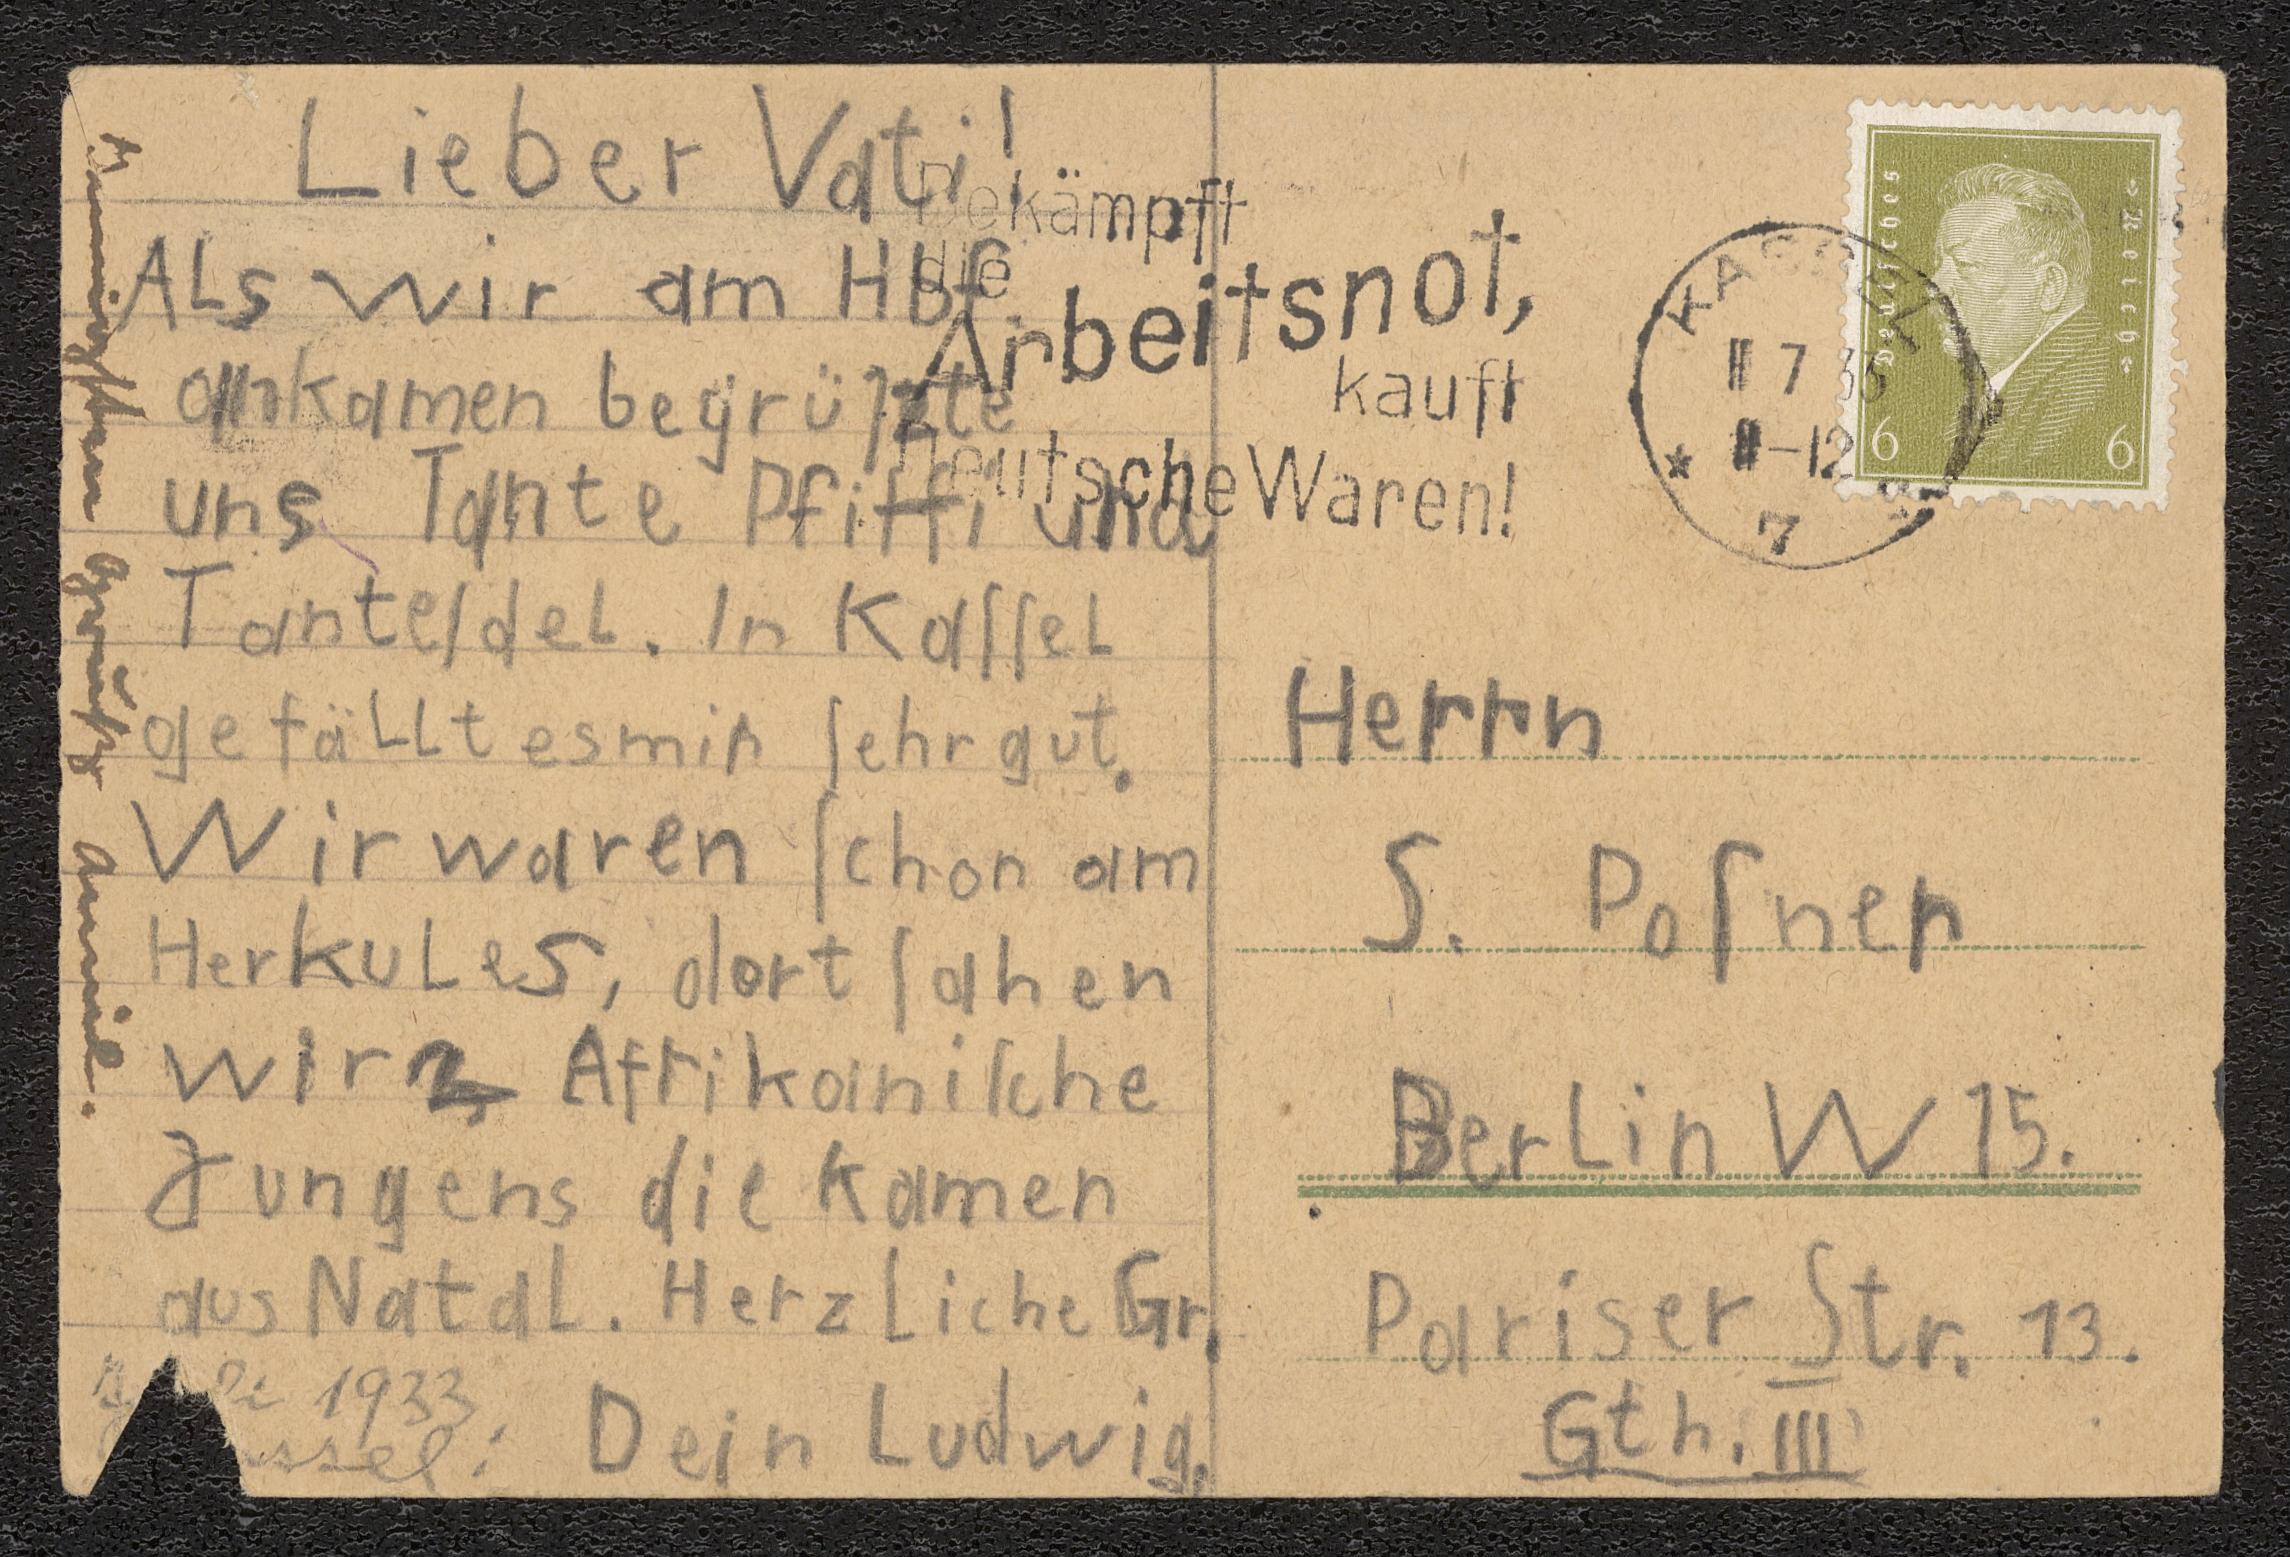 Lieber Vati!
Als wir am Hbf.
ankamen begrüſzte
uns Tante Pfiffi und
Tanteſdel. In Kaſſel
gefällt es mir ſehr gut.
Wir waren ſchon am
Herkules, dort ſahen
wir 2 Afrikaniſche
Jungens die kamen
aus Natal. Herzliche Gr.
Dein Ludwig.
1933
Grüße
Bekämpft
die
Arbeitsnot,
kauft
Deutsche Waren!
KASSEL
7
11-12
7
Deutsches Reich
6 6
Herrn
S. Poſner
Berlin W 15.
Pariser Str. 13.
Gth. III